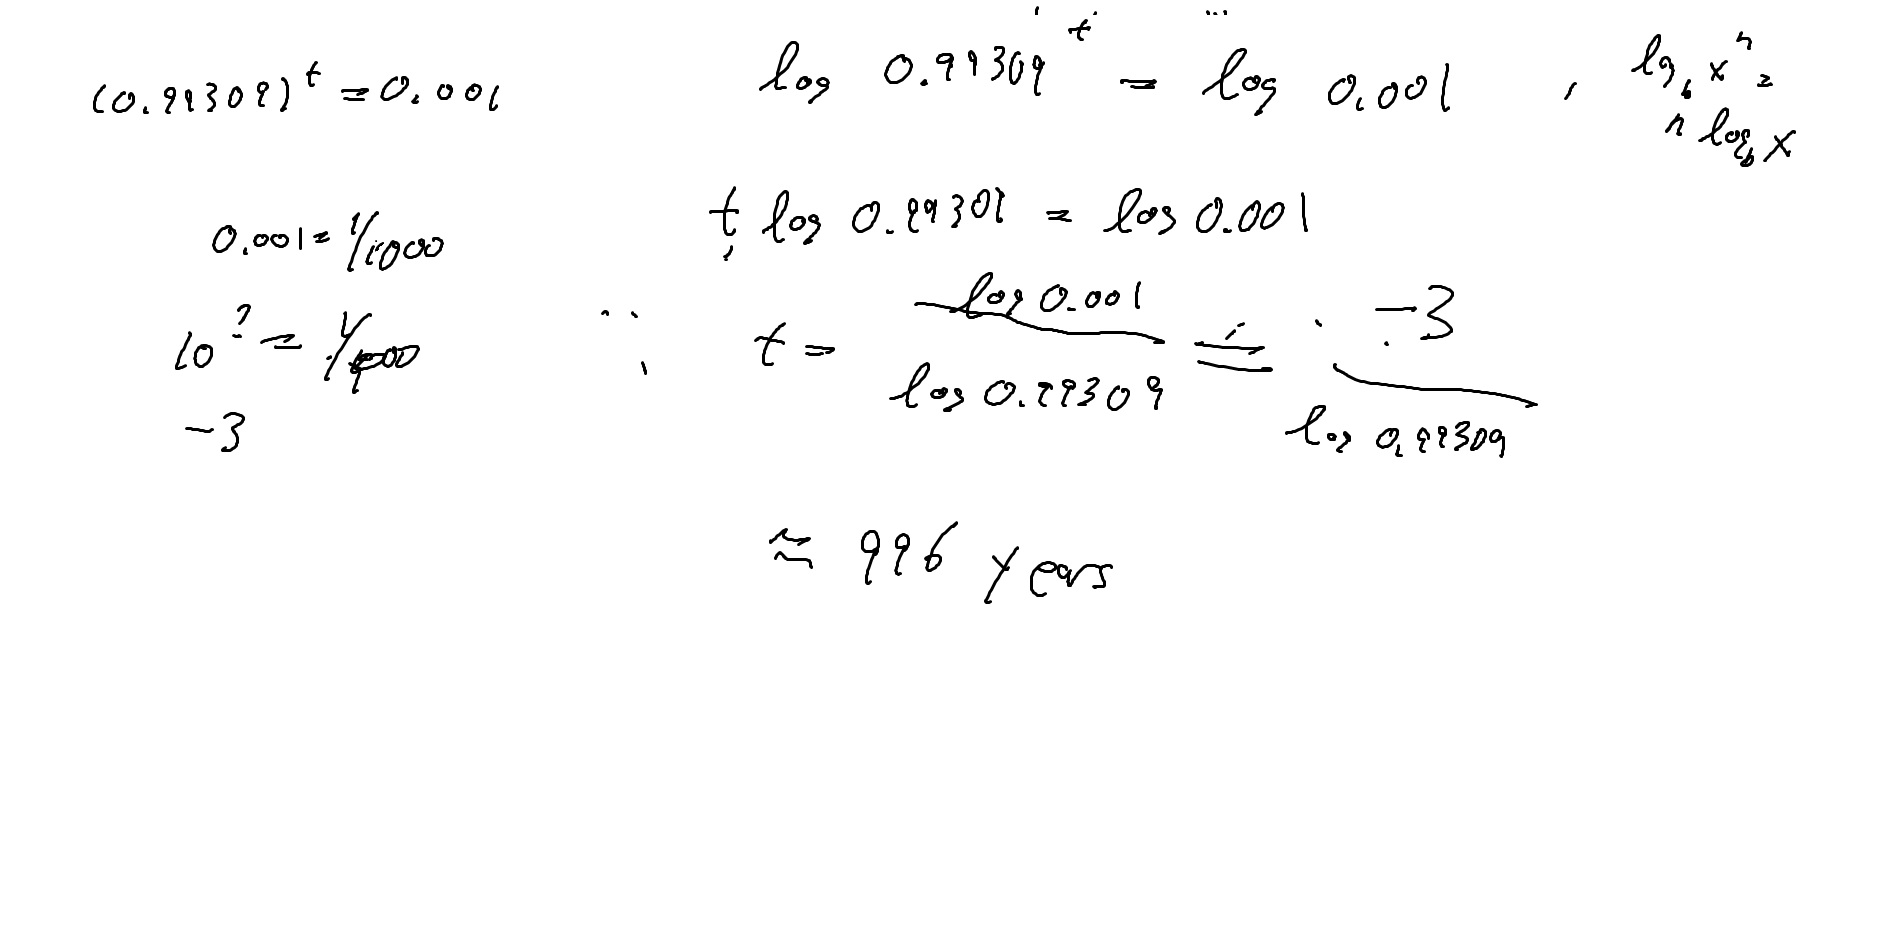 (0.99309)^t = 0.001
log 0.99309^t = log 0.001 , log_b x^n =
n log_b x
0.001 = 1/1000
t log 0.99309 = log 0.001
10^? = 1/1000
-3
t = log 0.001 / log 0.99309 = -3 / log 0.99309
≈ 996 years